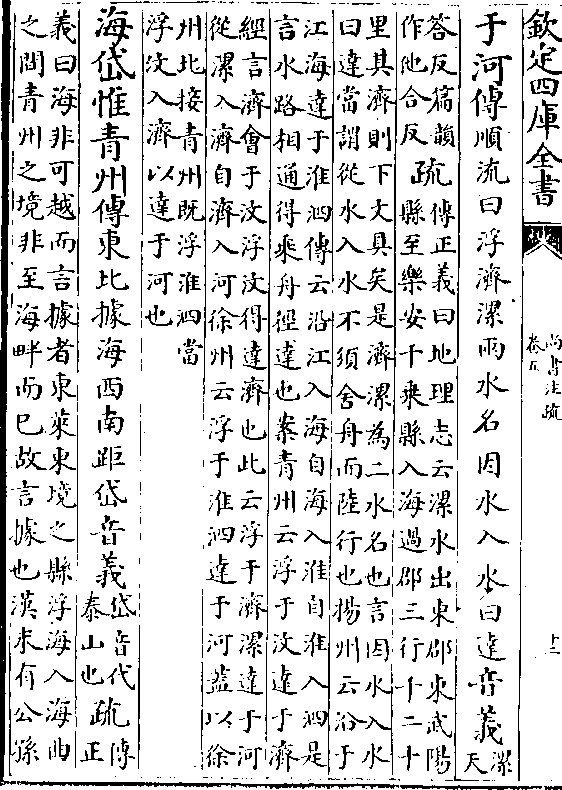 欽定四庫全書
尚書注疏
卷五
十二
于河傳順流曰浮濟漯兩水名因水入水曰達音義漯天
答反篇韻
作他合反疏傳正義曰地理志云漯水出東郡東武陽
縣至樂安千乗縣入海過郡三行千二十
里其濟則下文具矣是濟漯為二水名也言因水入水
曰達當謂從水入水不須舍舟而陸行也揚州云沿于
江海達于淮泗傳云沿江入海自海入淮自淮入泗是
言水路相通得乗舟徑達也案青州云浮于汶達于濟
經言濟會于汶浮汶得達濟也此云浮于濟漯達于河
從漯入濟自濟入河徐州云浮于淮泗達于河蓋以徐
州北接青州既浮淮泗當
浮汶入濟以達于河也
海岱惟青州傳東北據海西南距岱音義岱音代
泰山也疏傳正
義曰海非可越而言據者東萊東境之縣浮海入海曲
之間青州之境非至海畔而已故言據也漢末有公孫